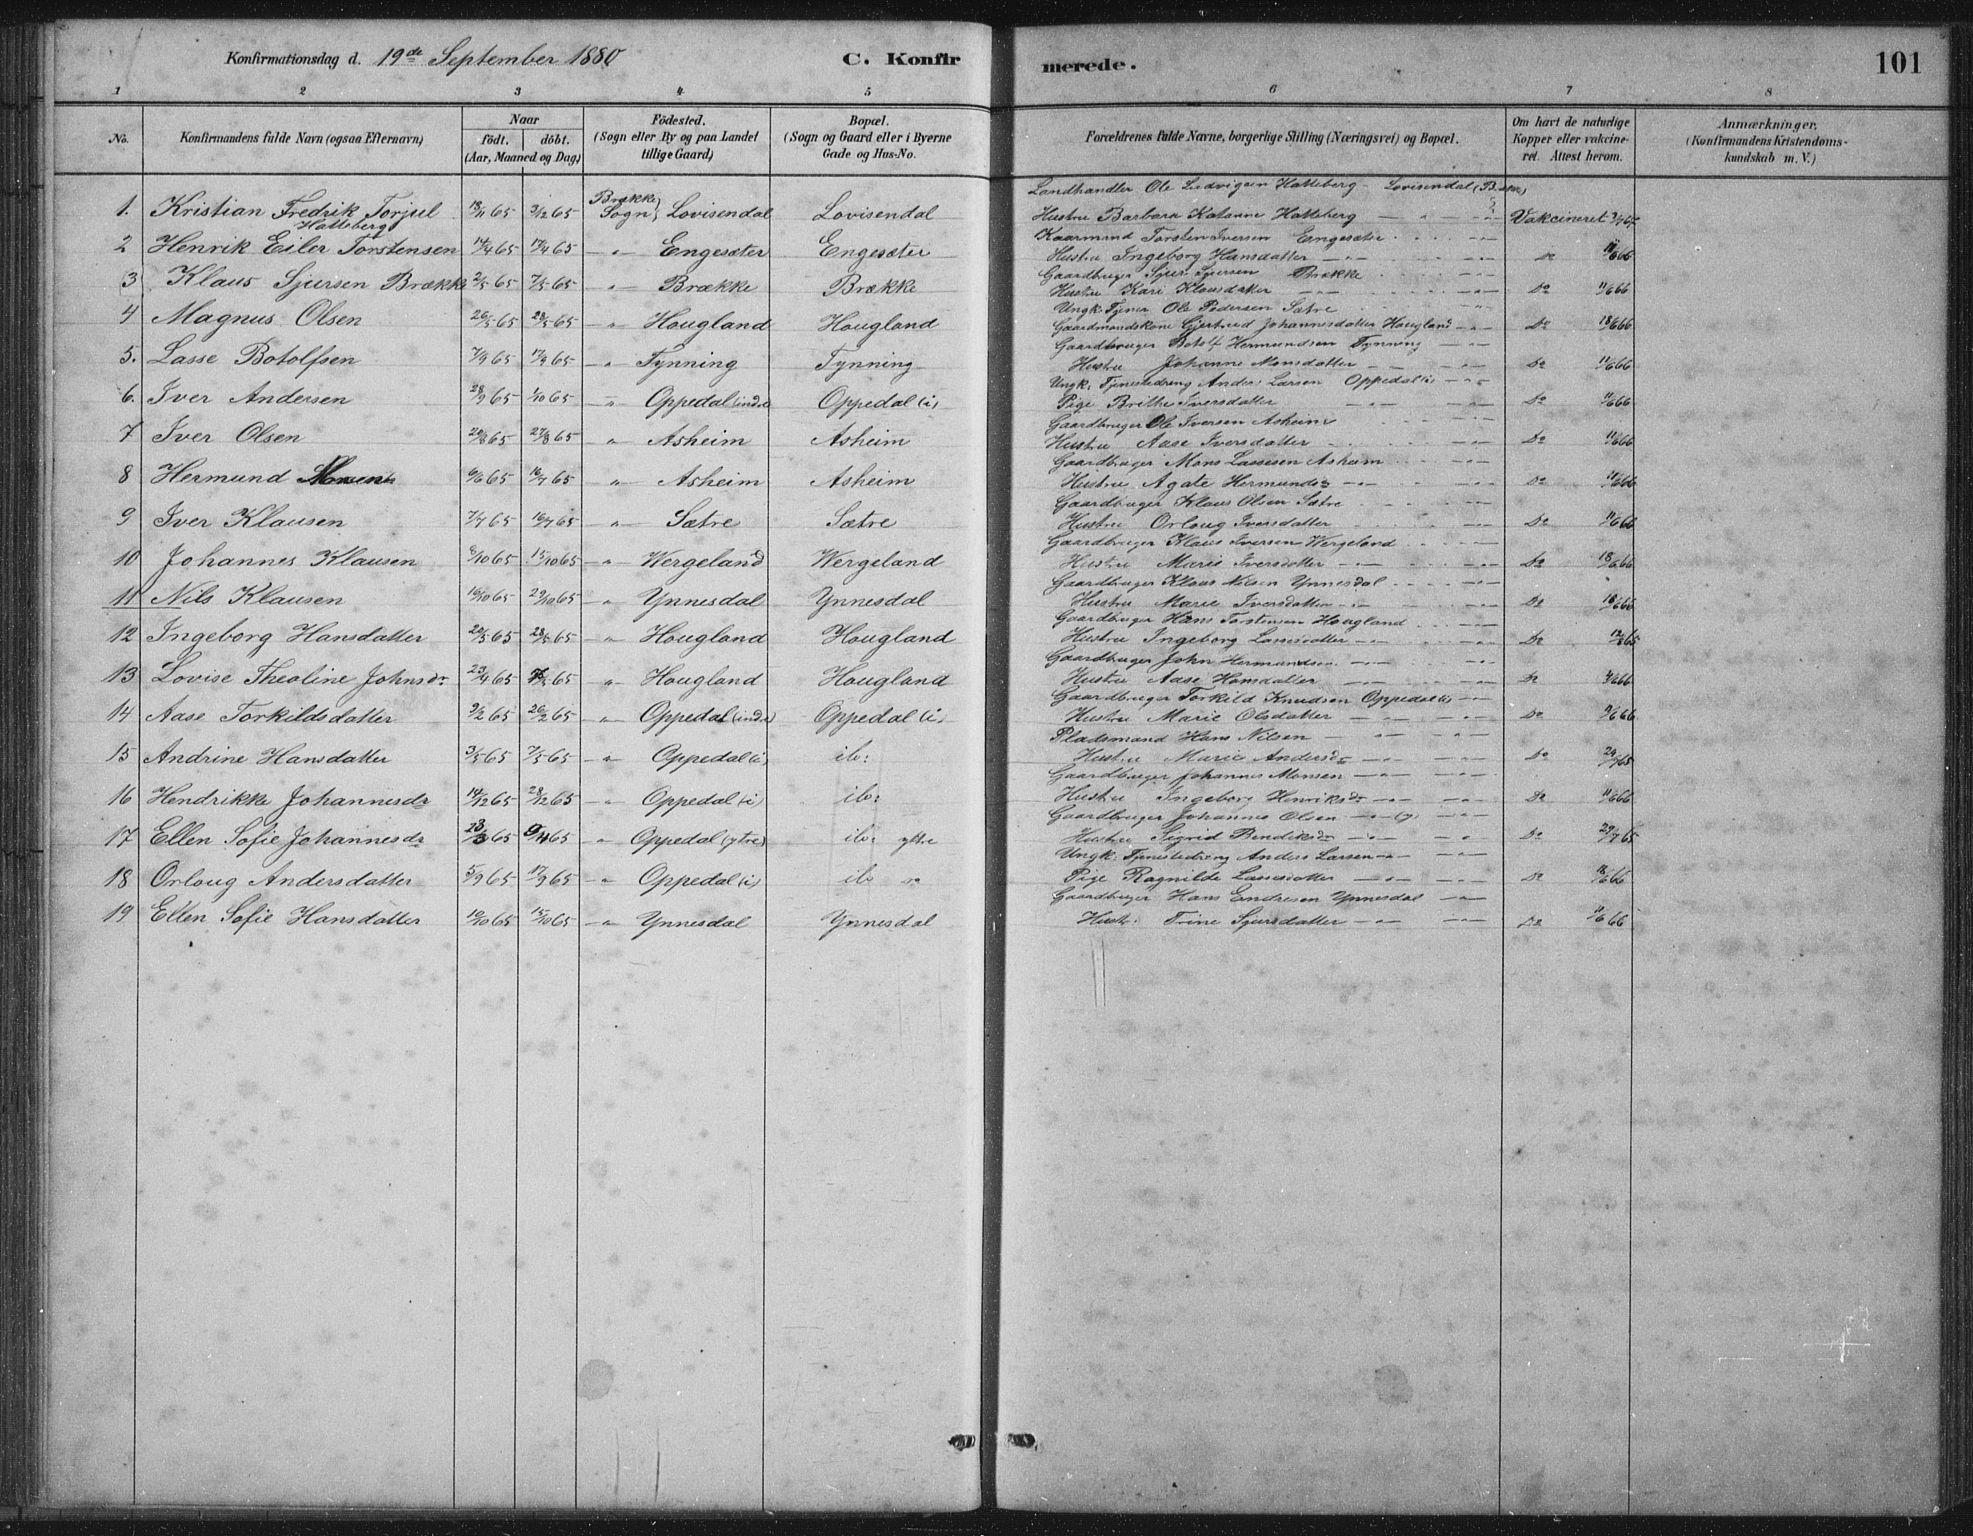 Konfirmationsdag d. 19de September 1880 C. Konfirmerede. 101
1 2 3 4 5 6 7 8
No. Konfirmandens fulde Navn (ogsaa Efternavn) Naar født. døbt. (Aar, Maaned og Dag) Födested. (Sogn eller By og paa Landet tillige Gaard) Bopæl. (Sogn og Gaard eller i Byerne Gade og Hus-No. Forældrenes fulde Navne, borgerlige Stilling (Næringsvei) og Bopæl. Om havt de naturlige Kopper eller vakcineret. Attest herom. Anmærkninger. (Konfirmandens Kristendomskundskab m. V.)
Landhandler Ole Ludvigsen Hatteberg Lovisendal
1. Kristian Fredrik Torjul Hatteberg 18/11 65 3/12 65 Brække Sogn Lovisendal Lovisendal Hustru Barbara Katarine Hatteberg — " — Vakcineret
Kaarmand Torsten Iversen Engesæter
2 Henrik Eiler Torstensen 14/4 65 17/4 65 — " — Engesæter Engesæter Hustru Ingeborg Hansdatter — " — Do
Gaardbruger Sjur Sjursen Brække
3 Klaus Sjursen Brække 2/5 65 7/5 65 — " — Brække Brække Hustru Kari Klausdatter — " — Do 11/6 66
Ungk. Tjener Ole Pedersen Sætre
4 Magnus Olsen 26/5 65 28/5 65 — " — Hougland Hougland Gaardmandskone Gjertrud Johannesdatter Hougland — " — Do 18/6 66
Gaardbruger Botolf Hermundsen Tynning — " —
5. Lasse Botolfsen 7/9 65 17/9 65 — " — Tynning Tynning Hustru Johanne Monsdatter — " — Do 11/6 66
Ungk: Tjenestedreng Anders Larsen Oppedal (i) — " —
6. Iver Andersen 28/9 65 1/10 65 — " — Oppedal (indre Oppedal (i) Pige Brithe Iversdatter — " — Do 11/6 66
Gaardbruger Ole Iversen Asheim
7 Iver Olsen 20/8 65 27/8 65 " Asheim Asheim Hustru Aase Iversdatter — " — Do 11/6 66
Gaardbruger Mons Lassesen Asheim — " —
8 Hermund Monsen 6/6 65 16/7 65 " Asheim Asheim Hustru Agate Hermundsdr — " — Do 11/6 66
Gaardbruger Klaus Olsen Sætre — " —
9 Iver Klausen 7/7 65 16/7 65 — " — Sætre Sætre Hustru Orloug Iversdatter — " — Do 11/6 66
Gaardbruger Klaus Iversen Wergeland — " —
10 Johannes Klausen 8/10 65 15/10 65 — " — Wergeland Wergeland Hustru Marie Iversdatter — " — Do 18/6 66
Gaardbruger Klaus Nilsen Ynnesdal — " —
11 Nils Klausen 16/10 65 29/10 65 — " — Ynnesdal Ynnesdal Hustru Marie Iversdatter — " — Do 18/6 66
Gaardbruger Hans Torstensen Hougland — " —
12 Ingeborg Hansdatter 22/5 65 28/5 65 — " — Hougland Hougland Hustru Ingeborg Lassesdatter — " — Do
Gaardbruger John Hermundsen — " —
13 Lovise Theoline Johnsdr 23/4 65 65 " Hougland Hougland Hustru Aase Hansdatter — " — Do
Gaardbruger Torkild Knudsen Oppedal (i) — " —
14 Aase Torkildsdatter 9/2 65 26/2 65 — " — Oppedal (indre Oppedal (i) Hustru Marie Olsdatter — " — Do
Pladsmand Hans Nilsen — " —
15 Andrine Hansdatter 3/5 65 7/5 65 — " — Oppedal (i) ib: Hustru Marie Andersdr — " — Do
Gaardbruger Johannes Monsen — " —
16 Hendrikke Johannesdr 14/12 65 28/12 65 — " — Oppedal (i) ib: Hustru Ingeborg Henriksdr — " — Do 11/6 66
Gaardbruger Johannes Olsen — " — (y) — " —
17 Ellen Sofie Johannesdr 65 65 " Oppedal (ytre) ib: ytre Hustru Sigrid Bendiksdr — " — Do 29/7 65
Ungk: Tjenestedreng Anders Larsen — " —
18 Orloug Andersdatter 5/9 65 17/9 65 — " — Oppedal (i) ib Pige Ragnilde Lassesdatter — " — Do
Gaardbruger Hans Endresen Ynnesdal — " —
19 Ellen Sofie Hansdatter 10/10 65 15/10 65 — " — Ynnesdal Ynnesdal Hustr: Trine Sjursdatter — " — Do 11/6 66